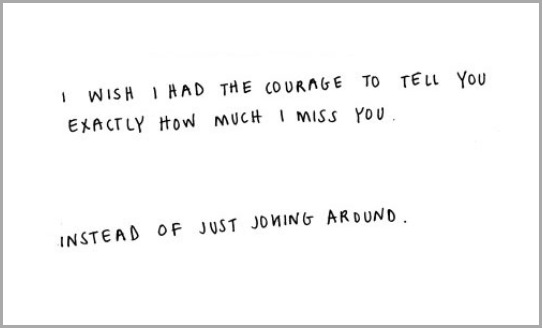 I WISH I HAD THE COURAGE TO TELL YOU
EXACTLY HOW MUCH I MISS YOU.
INSTEAD OF JUST JOKING AROUND.